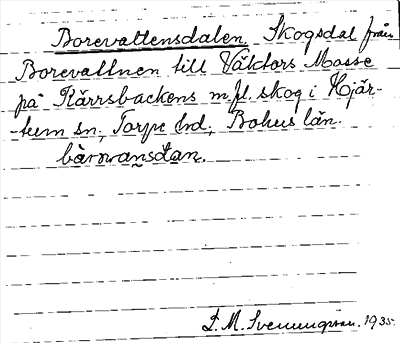 Borevattensdalen, Skogsdal från
Borevattnen till Väktors Mosse
på Kärrsbackens m.fl. skog i Hjär-
-tum sn, Torpe hd, Bohus län.
J. M. Svenungsson. 1935.